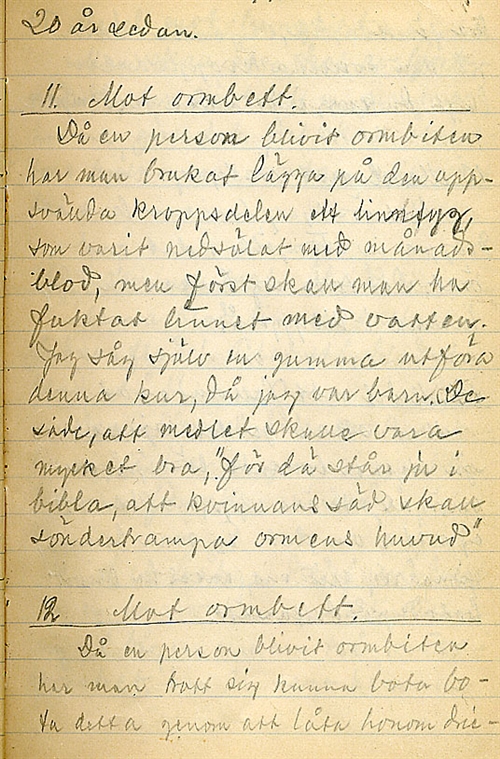 20 år sedan.
11. Mot ormbett.
Då en person blivit ormbiten
har man brukat lägga på den upp-
svällda kroppsdelen ett linntyg,
som varit nedsölat med månads-
blod, men först skall man ha
fuktat linnet med vatten.
Jag såg själv en gumma utföra
denna kur, då jag var barn. De
sade, att medlet skulle vara
mycket bra, "för då står ju i
bibla, att kvinnans säd skall
söndertrampa ormens huvud"
12. Mot ormbett.
Då en person blivit ormbiten
har man trott sig kunna bota bo-
ta detta genom att låta honom dric-